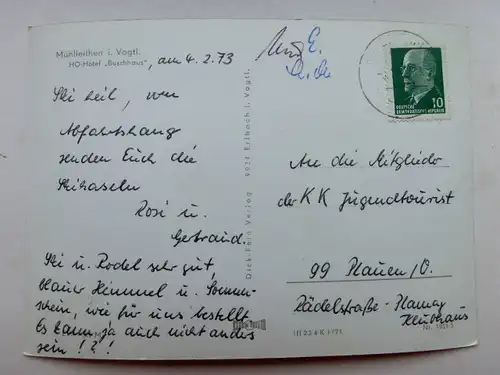 Mühlleithen i. Vogtl.
HO-Hotel „Buschhaus"
, am 4.2.73
Ski heil, vom
Abfahrtshang
senden Euch die
Skihaseln
Rosi u.
Gebraud.
Ski u. Rodel sehr gut,
blauer Himmel u. Sonnen-
schein, wie für uns bestellt.
Es kann ja auch nicht anders
sein!?!
Dick-Foto Verlag 9924 Erlbach i. Vogtl.
DEUTSCHE
DEMOKRATISCHE REPUBLIK
10
An die Mitglieder
der KK Jugendtourist
99 Plauen/V.
Rädelstraße-
Klubhaus
III 23 4 K 1/71
Nr. 1951 S